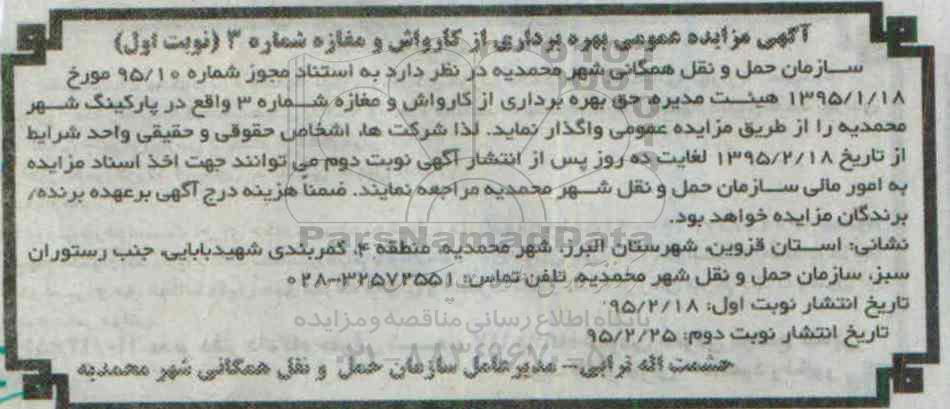 آگهی مزایده عمومی بهره برداری از کارواش و مغازه شماره ۳ (نوبت اول)
سازمان حمل و نقل همگانی شهر محمدیه در نظر دارد به استناد مجوز شماره ۹۵/۱۰ مورخ
۱۳۹۵/۱/۱۸ هیئت مدیره، حق بهره برداری از کارواش و مغازه شماره ۳ واقع در پارکینگ شهر
محمدیه را از طریق مزایده عمومی واگذار نماید. لذا شرکت ها، اشخاص حقوقی و حقیقی واحد شرایط
از تاریخ ۱۳۹۵/۲/۱۸ لغایت ده روز پس از انتشار آگهی نوبت دوم می توانند جهت اخذ اسناد مزایده
به امور مالی سازمان حمل و نقل شهر محمدیه مراجعه نمایند. ضمناً هزینه درج آگهی برعهده برنده/
برندگان مزایده خواهد بود.
نشانی: استان قزوین، شهرستان البرز، شهر محمدیه، منطقه ۴، کمربندی شهیدبابایی، جنب رستوران
سبز، سازمان حمل و نقل شهر محمدیه، تلفن تماس: ۳۲۵۷۲۵۵۱-۰۲۸
تاریخ انتشار نوبت اول: ۹۵/۲/۱۸
تاریخ انتشار نوبت دوم: ۹۵/۲/۲۵
حشمت اله ترابی- مدیرعامل سازمان حمل و نقل همگانی شهر محمدیه
ParsNamadData
پایگاه اطلاع رسانی مناقصه و مزایده